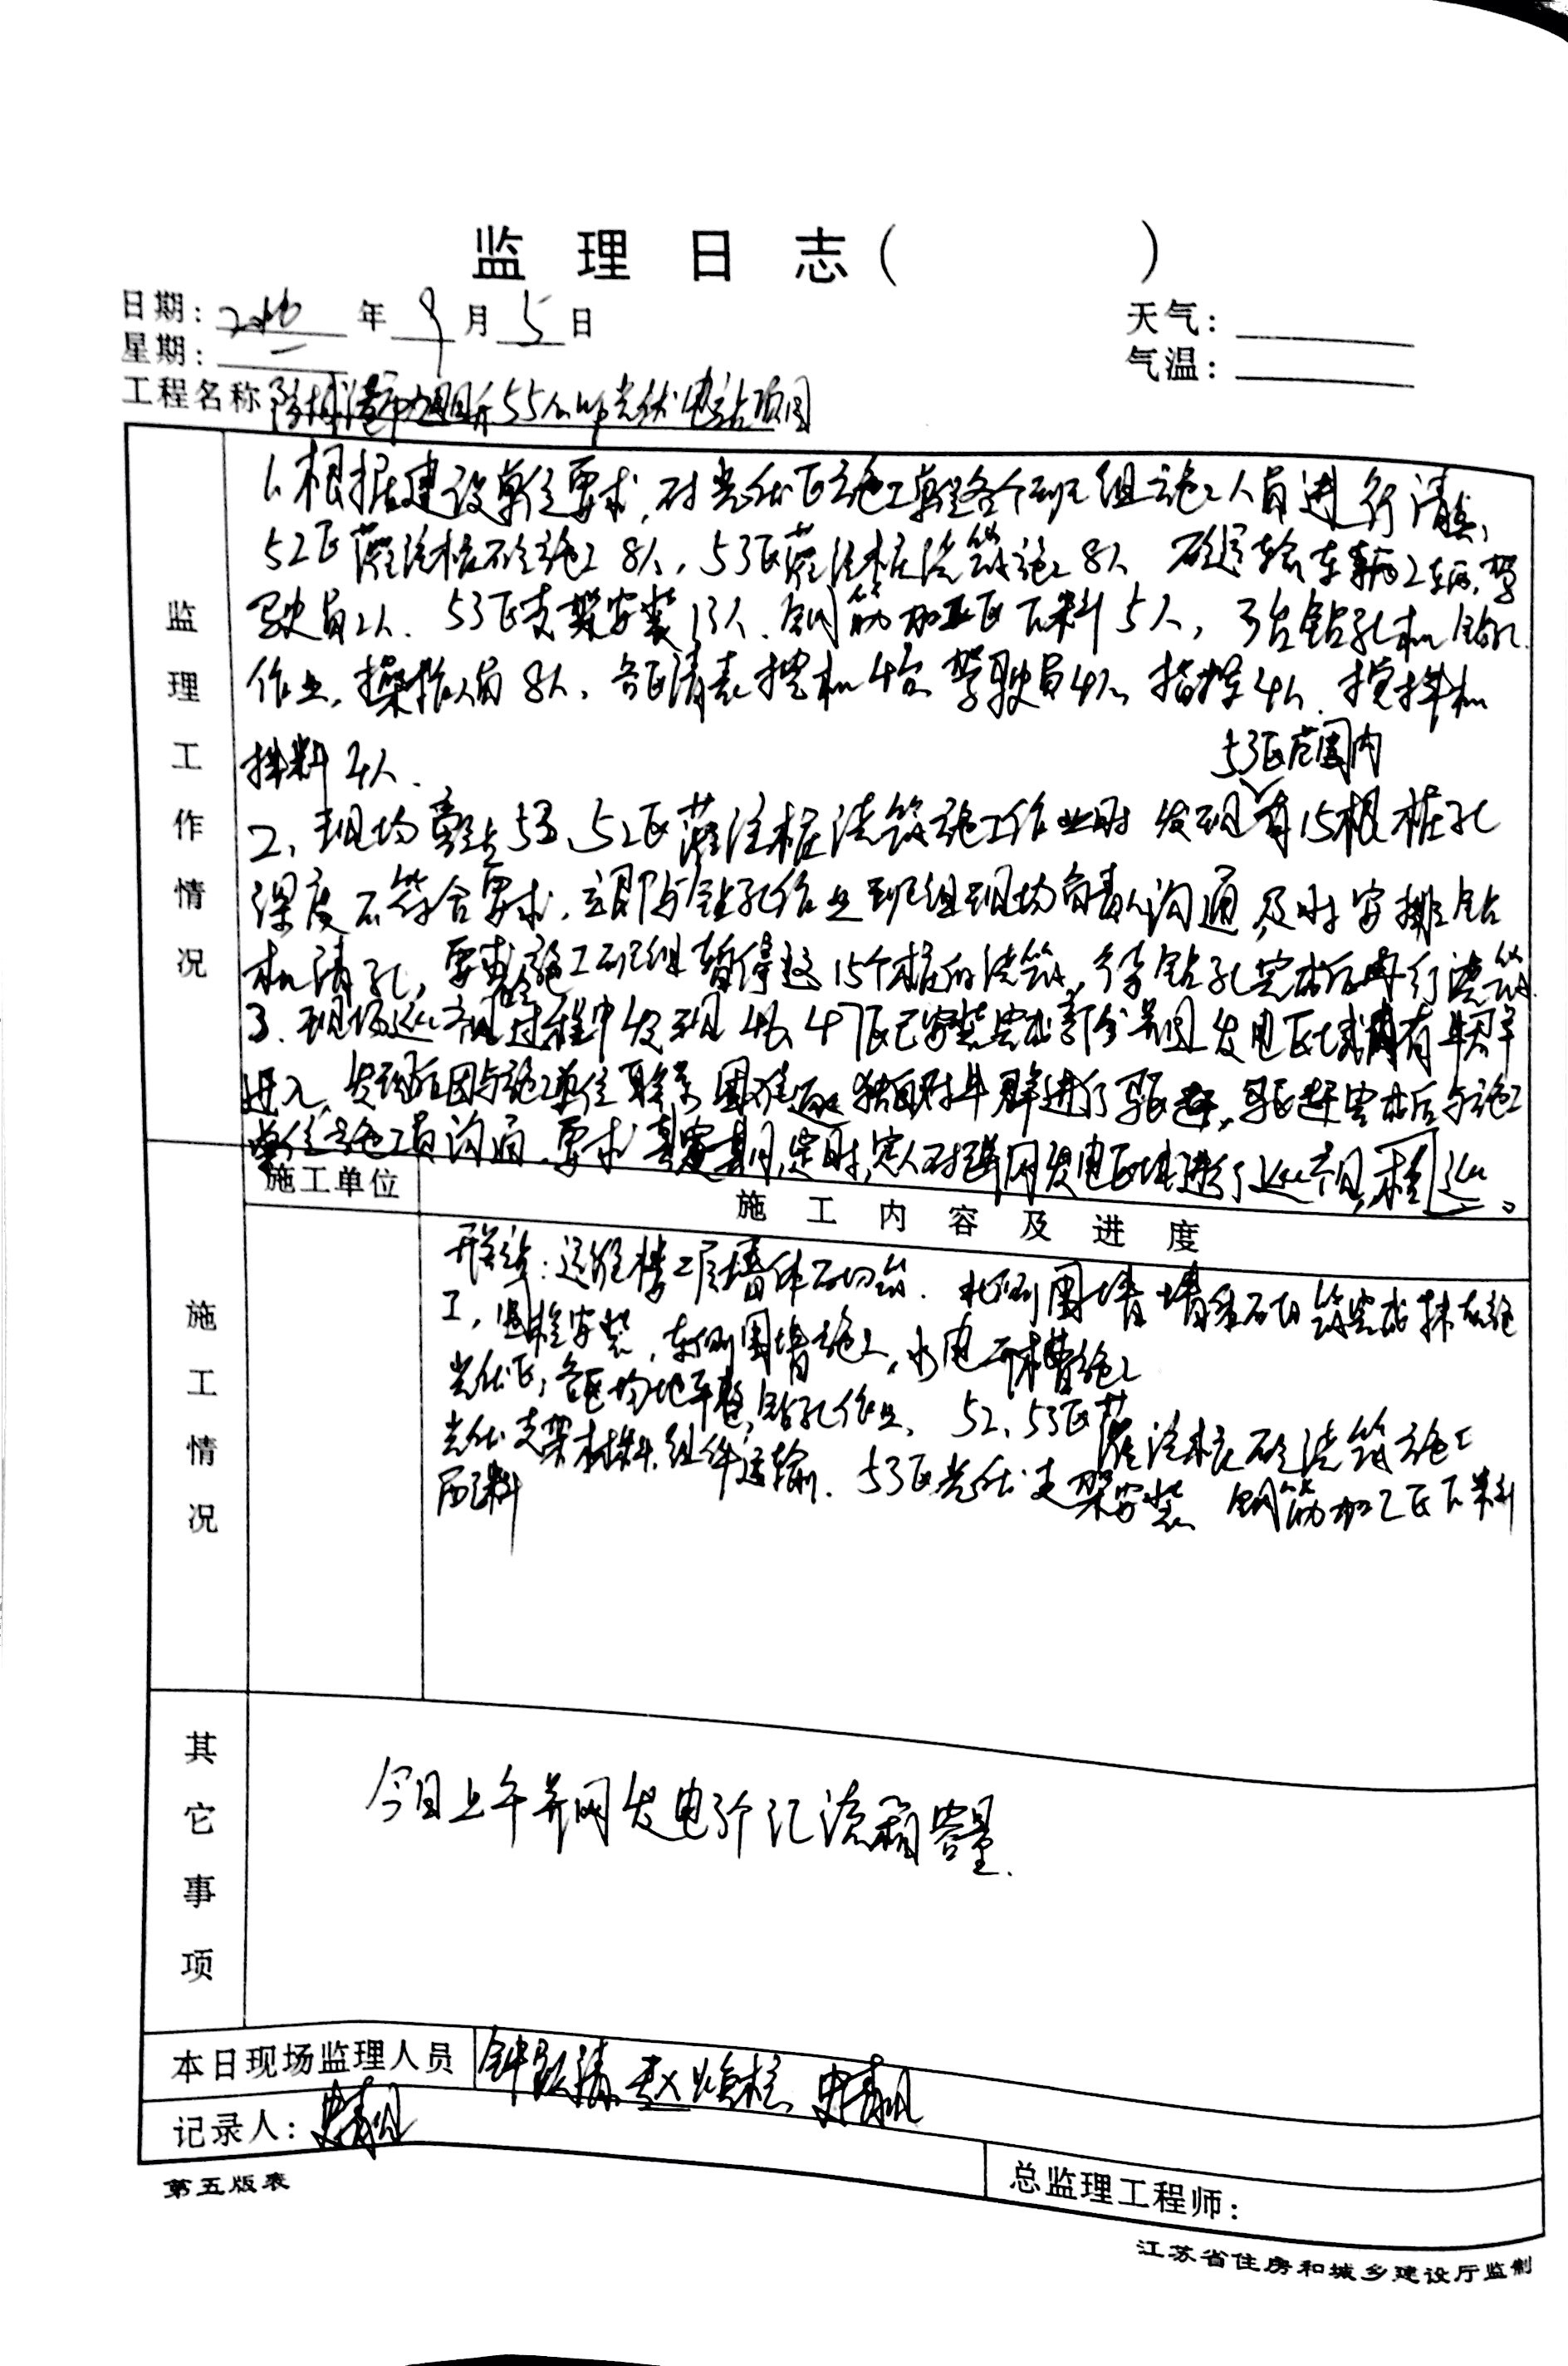 监理日志（ ）
日期：2016年9月5日
天气：
星期：一
气温：
工程名称 55MWp光伏电站项目
监理工作情况
1、根据建设单位要求，对光伏区施工单位各个班组施工人员进行清点，
52区灌注桩砼施工8人，53区灌注桩浇筑施工8人 砼运输车辆2辆，驾
驶员2人．53区支架安装13人．钢筋加工区下料5人，3台钻孔机钻孔
作业，操作人员8人，各区清表挖机4台 驾驶员4人 指挥4人．搅拌机
拌料2人．
53区范围内
2、现场旁站53、52区灌注桩浇筑施工作业时 发现有15根桩孔
深度不符合要求，立即与钻孔作业班组现场负责人沟通，及时安排钻
机清孔，要求施工班组暂停这15个桩的浇筑，待钻孔完成后再行浇筑．
3．现场巡视过程中发现 47区已安装完成部分并网发电区域内有牛群
进入，发现后因与施工单位联系 对牛群进行了驱赶，驱赶完成后与施工
单位施工员沟通，要求 定期，定时，定人对并网发电区域进行巡视，
施工单位
施工内容及进度
施工情况
开关站：二层墙体砌筑．北侧围墙墙身砌筑完成抹灰施
工，安装，东侧围墙施工，水电开槽施工
光伏区，各区场地平整，钻孔作业、52、53区灌注桩砼浇筑施工
光伏支架材料、组件运输．53区光伏支架安装 钢筋加工区下料
配料
其它事项
今日上午并网发电 汇流箱容量．
本日现场监理人员
记录人：
总监理工程师：
第五版表
江苏省住房和城乡建设厅监制